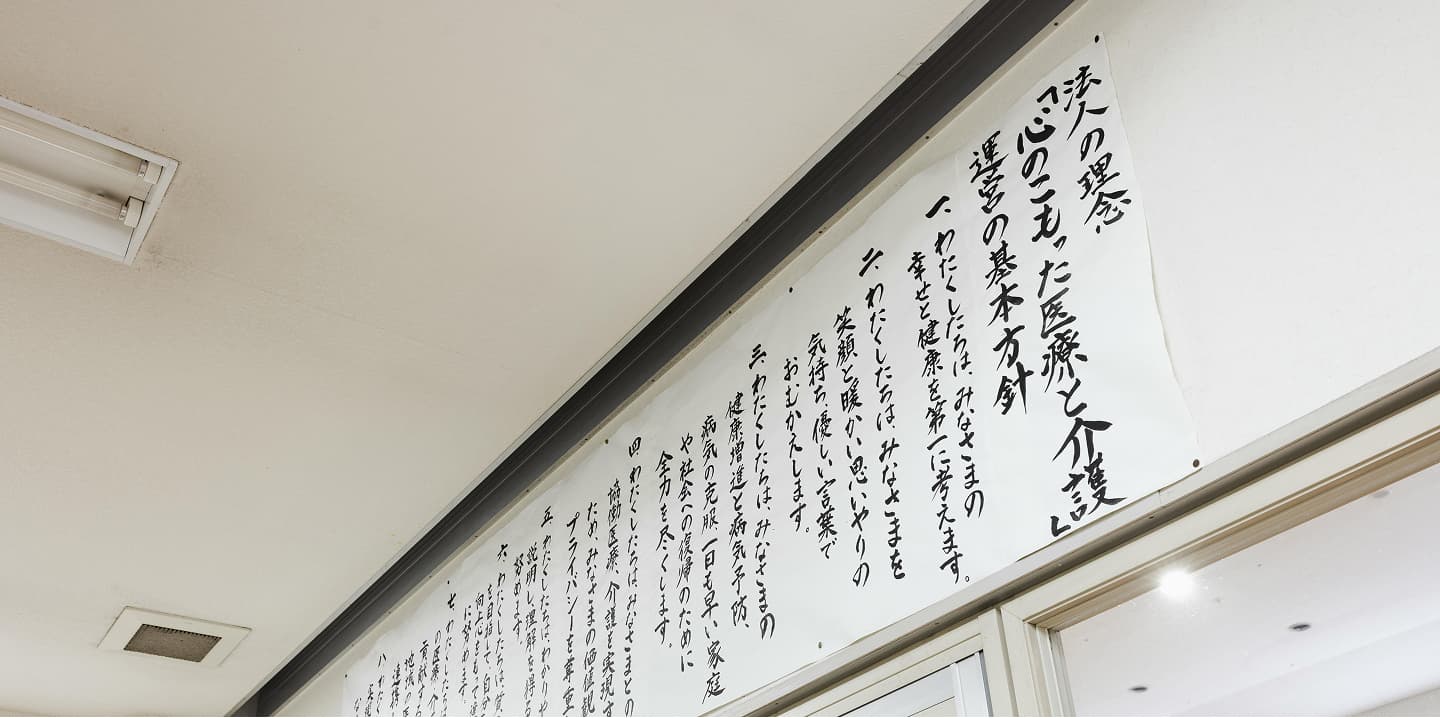 法人の理念
「心のこもった医療と介護」
運営の基本方針
一、わたくしたちは、みなさまの
幸せと健康を第一に考えます。
二、わたくしたちは、みなさまを
笑顔と暖かい思いやりの
気持ち、優しい言葉で
おむかえします。
三、わたくしたちは、みなさまの
健康増進と病気予防、
病気の克服、一日も早い家庭
や社会への復帰のために
全力を尽くします。
四、わたくしたちは、みなさまとの
協働医療、介護を実現す
ため、みなさまの価値観
プライバシーを尊重
五、わたくしたちは、わかりや
説明し理解を得る
努めます。
六、わたくしたちは
を目指して自分
向上心をもって
に努めます
七、わたくしたちは
の医療
貢献する
地域の
連携
八、わた